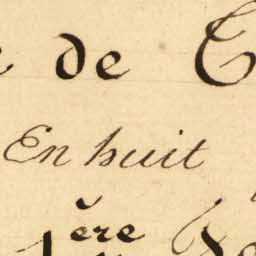 de
En huit
1ère